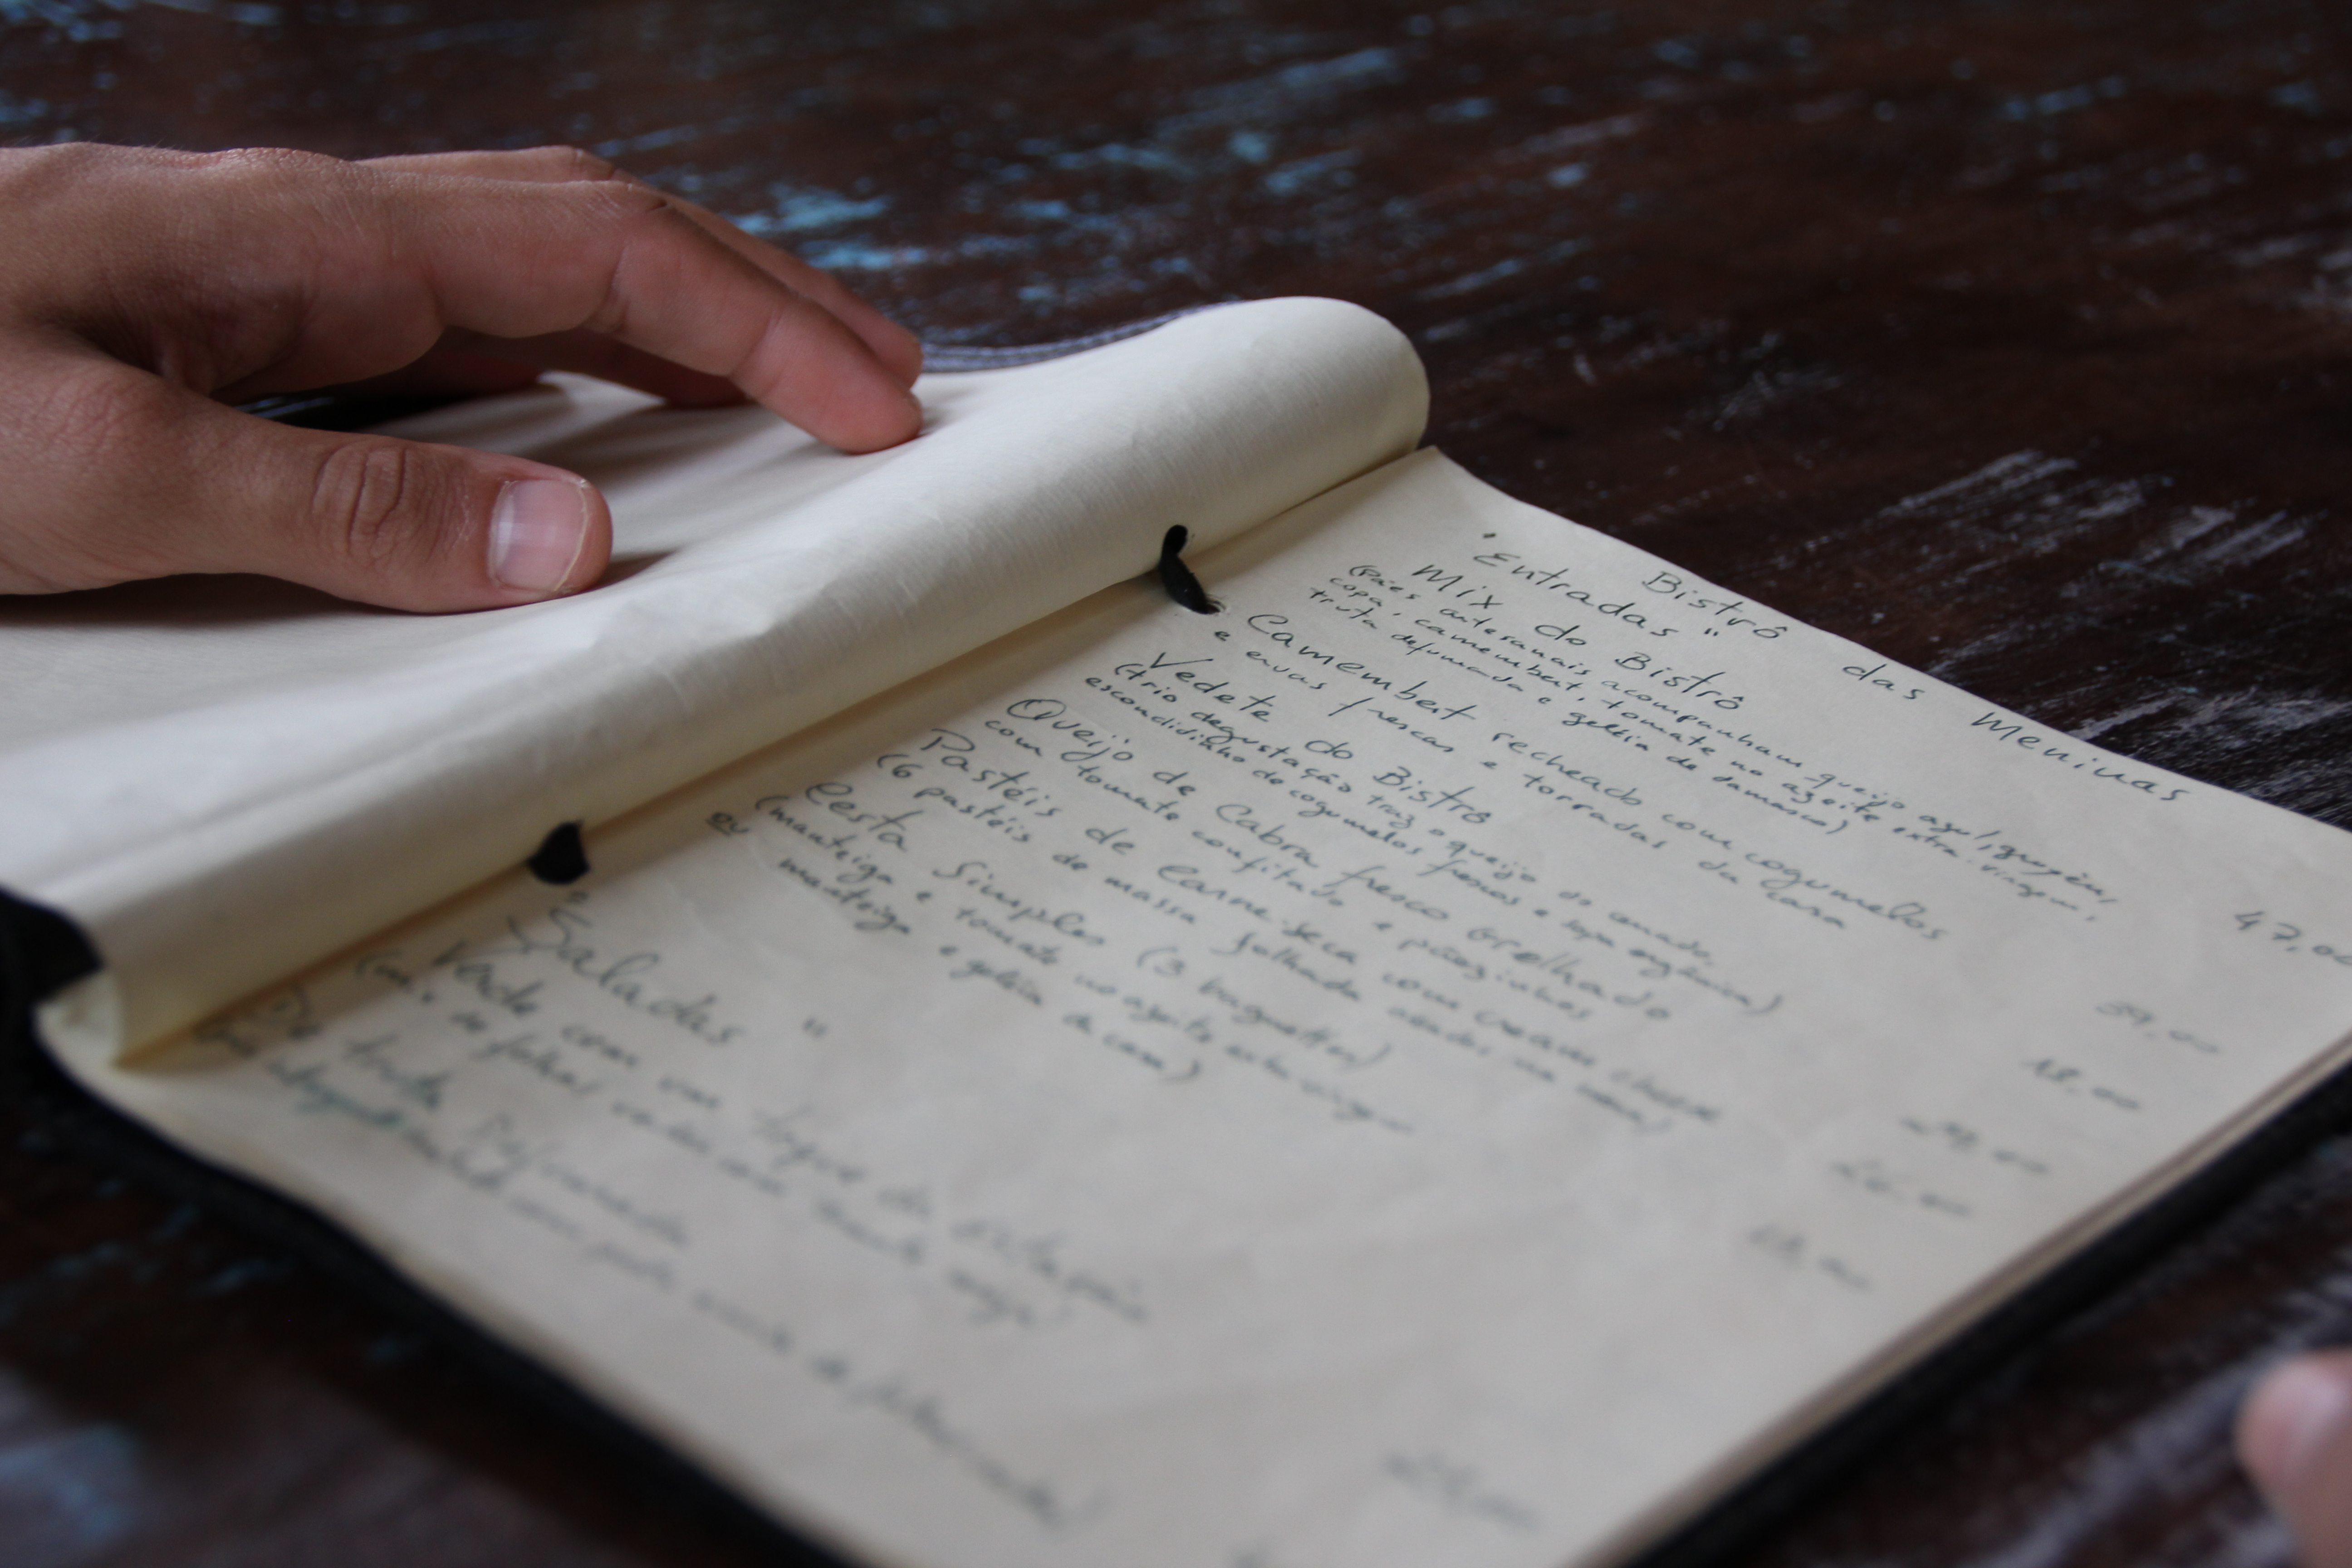 Bistrô das Meninas
"Entradas"
Mix do Bistrô
(pães artesanais acompanham queijo azul, gruyère,
copa, camembert, tomate no azeite extra-virgem,
truta defumada e geléia de damasco) 47,00
Camembert recheado com cogumelos
e ervas frescas e torradas da casa 39,00
Vedete do Bistrô
(trio degustação traz o queijo do cerrado,
escondidinho de cogumelos frescos e sopa orgânica) 48,00
Queijo de Cabra fresco Grelhado
com tomate confitado e pãezinhos
Pastéis de Carne-seca com cream cheese
(6 pastéis de massa folhada
Cesta Simples (3 baguettes)
(manteiga e tomate no azeite extra-virgem
ou manteiga e geléia da casa)
"Saladas"
Verde com um toque de estação
(mix de folhas verdes com
De truta Defumada